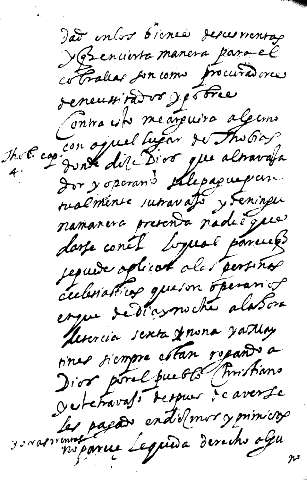 dad enlos bienes de sus rrentas
y que en cierta manera para el
cobrallas son como procuradores
de necessitados y pobres
Contra esto me arguira alguno
con aquel lugar de Thobias
Thob. cap. 4.
donde dize Dios que al trabaja
dor y operario se le pague pun
tualmente su trabajo y de ningu
na manera pretenda nadie que
darse con el lo qual parece que
se puede aplicar a las personas
ecclesiasticas que son operarios
en que de dia y noche a la hora
de tercia sexta y nona y a May
tines siempre estan rogando a
Dios por el pueblo Christiano
y este trabajo despues de averse
les pagado en diezmos y primicias
no parece le queda derecho algu
no